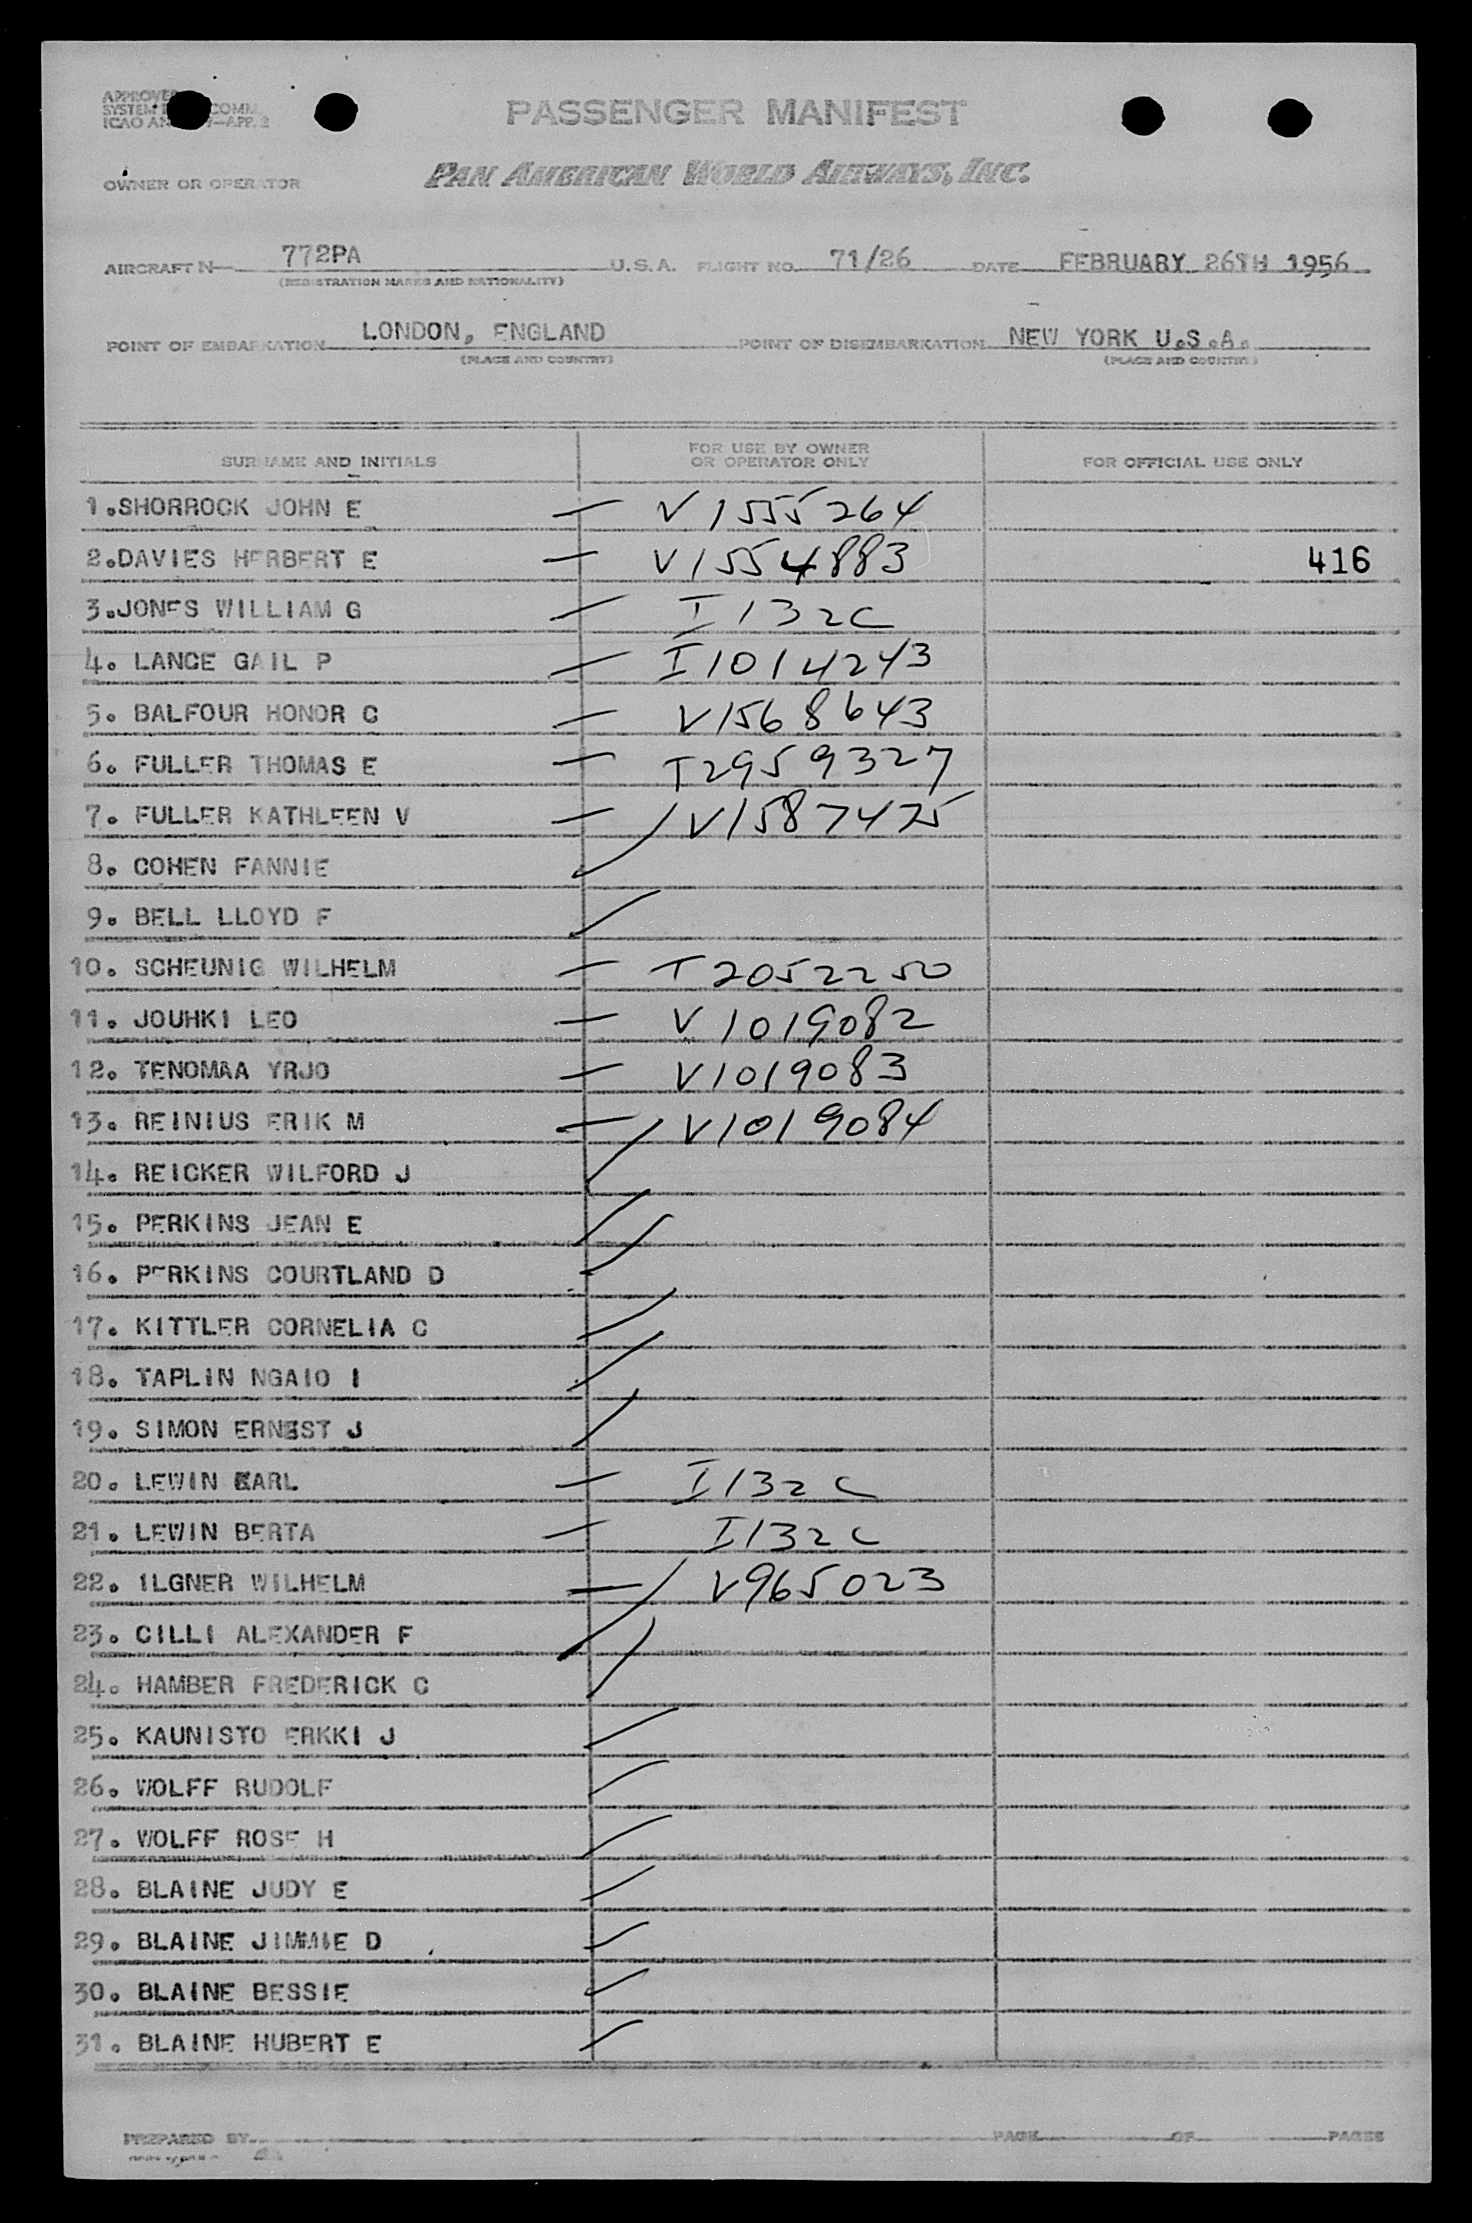 PASSENGER MANIFEST
OWNER OR OPERATOR PAN AMERICAN WORLD AIRWAYS, INC.
AIRCRAFT N 772PA U.S.A. FLIGHT NO. 71/26 DATE FEBRUARY 26TH 1956
(REGISTRATION MARKS AND NATIONALITY)
POINT OF EMBARKATION LONDON, ENGLAND POINT OF DISEMBARKATION NEW YORK U.S.A.
(PLACE AND COUNTRY) (PLACE AND COUNTRY)
SURNAME AND INITIALS FOR USE BY OWNER OR OPERATOR ONLY FOR OFFICIAL USE ONLY
1.SHORROCK JOHN E — V1555264
2.DAVIES HERBERT E — V1554883 416
3.JONES WILLIAM G — I132C
4. LANCE GAIL P — I1014243
5. BALFOUR HONOR C — V1568643
6. FULLER THOMAS E — T2959327
7. FULLER KATHLEEN V — V1587475
8. COHEN FANNIE
9. BELL LLOYD F
10. SCHEUNIG WILHELM — T2052250
11. JOUHKI LEO — V1019082
12. TENOMAA YRJO — V1019083
13. REINIUS ERIK M — V1019084
14. REICKER WILFORD J
15. PERKINS JEAN E
16. PERKINS COURTLAND D
17. KITTLER CORNELIA C
18. TAPLIN NGAIO I
19. SIMON ERNEST J
20. LEWIN KARL — I132C
21. LEWIN BERTA — I132C
22. ILGNER WILHELM — V965023
23. CILLI ALEXANDER F
24. HAMBER FREDERICK C
25. KAUNISTO ERKKI J
26. WOLFF RUDOLF
27. WOLFF ROSE H
28. BLAINE JUDY E
29. BLAINE JIMMIE D
30. BLAINE BESSIE
31. BLAINE HUBERT E
PREPARED BY PAGE OF PAGES